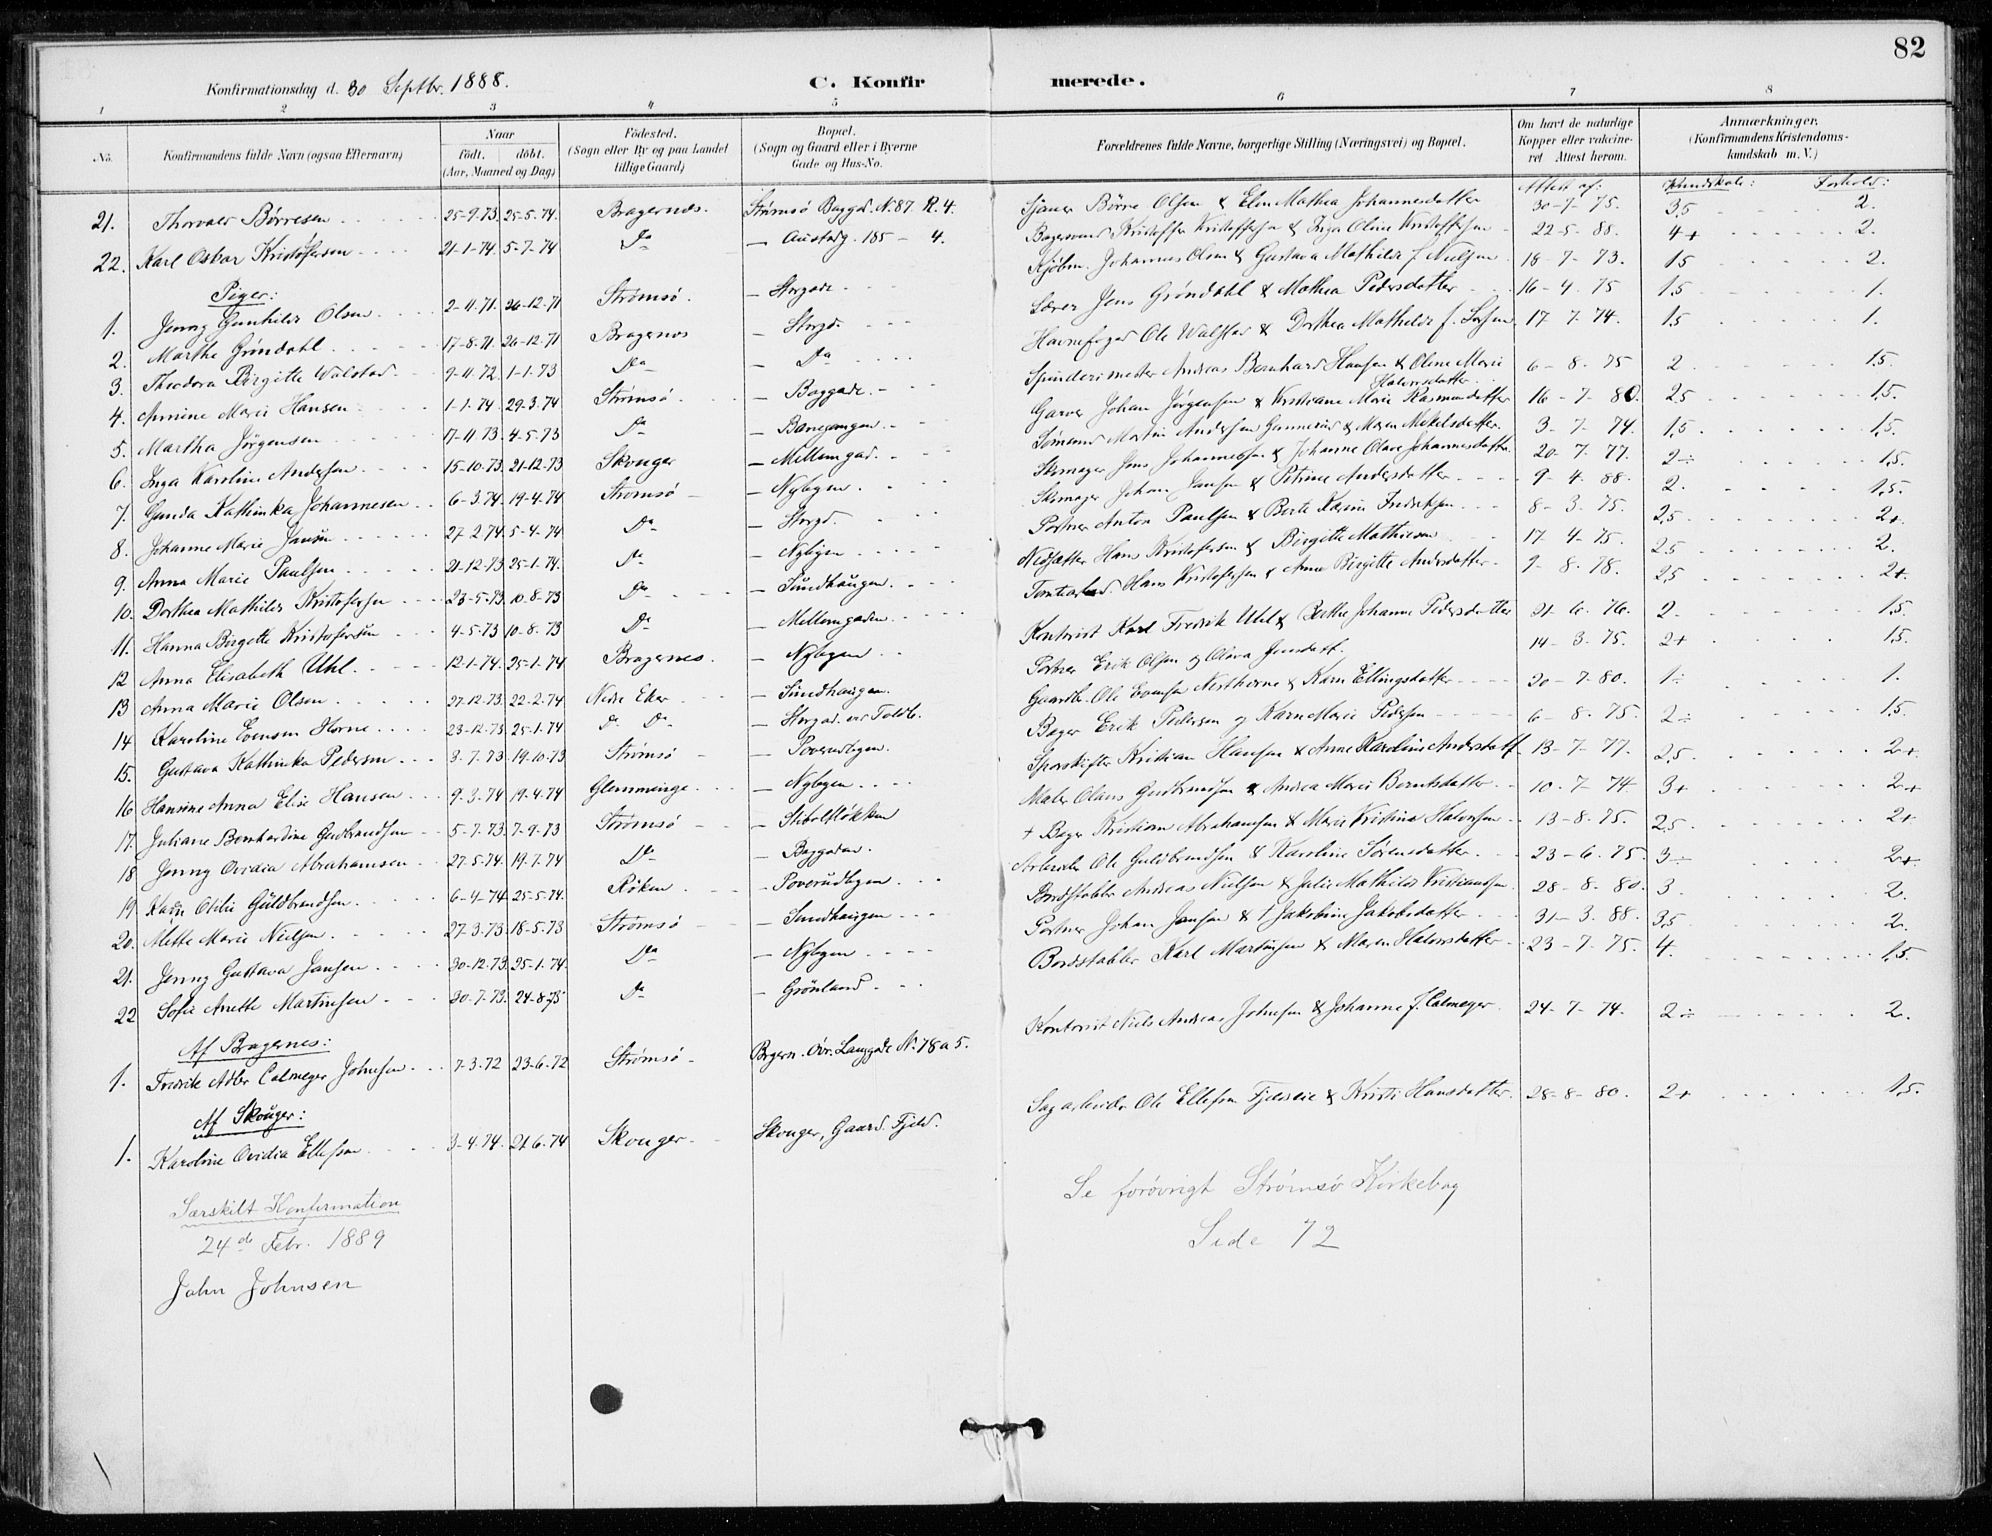 82
Konfirmationsdag d. 30 Septbr. 1888. C. Konfirmerede.
1 2 3 4 5 6 7 8
No. Konfirmandens fulde Navn (ogsaa Efternavn) Naar født. døbt. (Aar, Maaned og Dag) Fødested. (Sogn eller By og paa Landet tillige Gaard) Bopæl. (Sogn og Gaard eller i Byerne Gade og Hus-No. Forældrenes fulde Navne, borgerlige Stilling (Næringsvei) og Bopæl. Om havt de naturlige Kopper eller vakcineret Attest herom. Anmærkninger. (Konfirmandens Kristendomskundskab m. V.)
Attest af: Kundskab: Forhold:
21. Thorvald Børresen 25-9.73. 25-5.74. Bragernæs. Strømsø Baggd. N. 87. R. 4. Sjauer Børre Olsen & Elen Mathea Johannesdatter 30-7-75. 3,5 2.
22. Karl Oskar Kristofersen 21-1-74. 5-7.74 Do — Austadg. 185 — 4. Kristoffer Kristoffersen & Inga Oline Kristoffersen 22-5-88. 4+ 2.
Piger:
1. Jenny Gunhilde Olsen 2-11.71. 26-12.71 Strømsø. — Storgade Kjøbm. Johannes Olsen & Gustava Mathilde f. Nielsen 18-7-73. 1,5 2.
2. Marthe Grøndahl 17-8.71. 26-12.71 Bragernes — Storgd. Lærer Jens Grøndahl & Mathea Pedersdatter 16-4.75 1,5 1.
3. Theodora Birgitte Walstad 9-4.72. 1-1.73 Do — Do Havnefoged Ole Walstad & Dorthea Mathilde f. 17.7.74. 1,5 1.
4. Annine Marie Hansen 1-1.74. 29.3.74 Strømsø. — Baggade. Spinderimester Andreas Bernhard Hansen & Oline Marie Halvorsdatter 6-8.75 2 1,5.
5. Martha Jørgensen 17-11.73. 4-5.73 Do Garver Johan Jørgensen & Kristiane Marie Rasmusdatter 16-7-80. 2,5 1,5.
6. Inga Karoline Andersen 15-10.73. 21-12.73 Skouger — Mellemgad. Sømand Martin Andersen & Maren Mikelsdatter. 3-7-74. 1,5 1,5.
7. Gunda Kathinka Johannesen 6-3.74. 19-4.74 Strømsø — Nybyen. Skomager Jens Johannessen & Johanne Olave Johannesdatter 20-7.77. 2÷ 1,5.
8. Johanne Marie Jansen 27-2.74. 5-4.74 Do — Storgd. Skomager Johan Jansen & Petrine Andersdatter 9-4.88. 2. 1,5.
9. Anna Marie Paulsen 21-12.73. 25-1.74. Do — Nybyen Portner Anton Paulsen & Berte Karine Fredriksen 8-3.75. 2,5 2+.
10. Dorthea Mathilde Kristofersen 23-5.73. 10-8-73 Do — Sundhaugen. Hans Kristofersen & Birgitte Mathiesen 17-4-75. 2,5 2.
11. Hanna Birgitte Kristofersen 4-5.73. 10-8.73 Do — Mellemgaden. Hans Kristofersen & Anne Birgitte Andersdatter 9-8.78. 2,5 2+.
12 Anna Elisabeth Uhl. 12-1-74. 25-1-74 Bragernes. — Nybyen Kontorist Karl Fredrik Uhl & Berthe Johanne Pedersdatter 21-6.76. 2 1,5.
13 Anna Marie Olsen 27-12.73. 22-2.74 Nedre Eker — Sundhaugen. Portner Erik Olsen og Olava Jensdatt. 14-3.75. 2+ 1,5.
14 Karoline Evensen Horne 23-12.73. 25-1.74 Do Do — Storgad. ved Toldb. Gaardbr. Ole Evensen Nesthorne & Karn Ellingsdatter 20-7-80. 1÷ 1.
15. Gustava Kathinka Pedersen 3-7.73. 19-10.73 Strømsø — Poverudbyen. Bager Erik Pedersen og Karn Marie Pedersen 6-8.75. 2÷ 1,5.
16 Hansine Anna Elise Hansen 9-3.74. 19-4.74 Glemminge. — Nybyen Sporskifter Kristian Hansen & Anne Karoline Andersdatt 13-7-77. 2,5. 2+
17. Juliane Bernhardine Gudbrandsen 5-7.73. 7-9.73 Strømsø — Stibolsløkken Maler Olaus Gudbrandsen & Andrea Marie Berntsdatter 10.7-74 3+ 2+
18 Jenny Ovidia Abrahamsen 27-5.74. 19.7.74 Do — Baggaden. + Bager Kristian Abrahamsen & Marie Kristine Halvorsen 13-8-75. 2,5 2+
19. Karn Otilie Guldbrandsen 6-4-74. 25-5.74. Røken — Poverudbyen Arbeider Ole Guldbrandsen & Karoline Sørensdatter 23-6.75. 3÷ 2+
20. Mette Marie Nielsen 27-3.73. 18-5.73 Strømsø — Sundhaugen Bordstabler Andreas Nielsen & Julie Mathilde Kristiansen 28-8.80. 3. 2.
21. Jenny Gustava Jansen 30-12.73. 25-1.74. Do — Nybyen Portner Johan Jansen & † Jakobine Jakobsdatter 31-3.88. 3,5 2.
22 Sofie Anette Martinsen 30-7-73. 24-8.75 Do — Grønland Bordstabler Karl Martinsen & Maren Halvorsdatter 23-7-75. 4. 1,5.
Af Bragernes:
1. Fredrik Adler Calmeyer Johnsen 7-3.72 23-6.72 Strømsø Bragern. Øvr. Langgade N. 78 a 5. Kontorist Niels Andreas Johnsen & Johanne f. Calmeyer. 24-7-74. 2÷ 2.
Af Skouger:
1. Karoline Ovidia Ellefsen 3-4.74. 21.6.74 Skouger Skouger, Gaard. Fjeld. Sagarbeider Ole Ellefsen Fjeldeie & Kristi Hansdatter 28-8-80. 2+ 1,5.
Særskilt Konfirmation
24de Febr. 1889
John Johnsen
Se forøvrigt Strømsø Kirkebog
Side 72